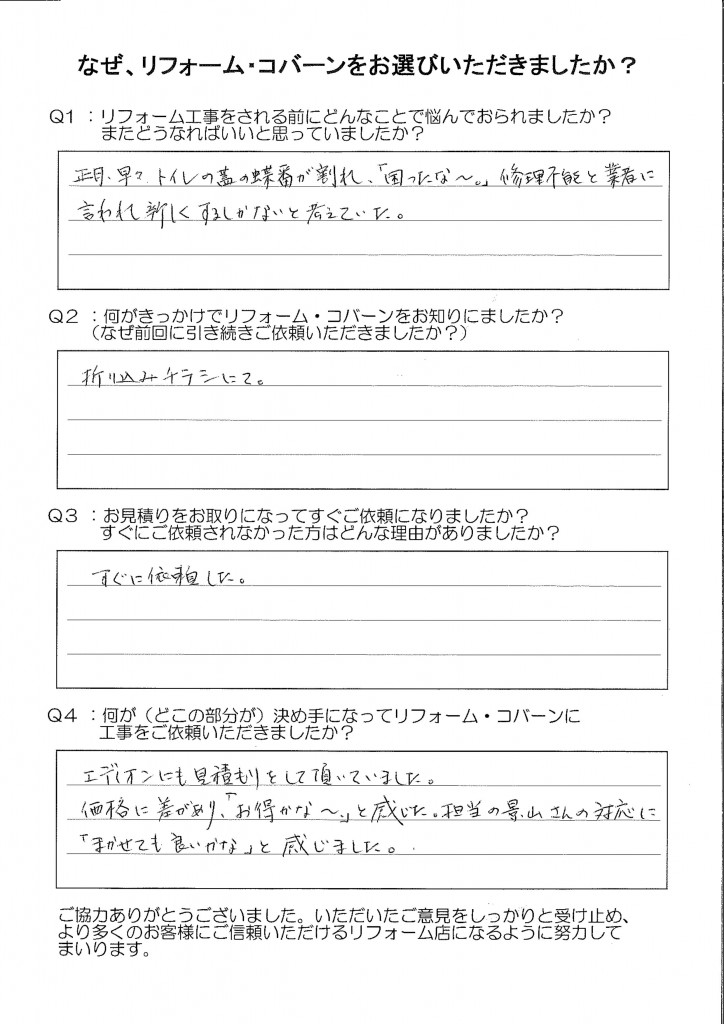 なぜ、リフォーム・コバーンをお選びいただきましたか？
Q1 ：リフォーム工事をされる前にどんなことで悩んでおられましたか？
またどうなればいいと思っていましたか？
正月、早々、トイレの蓋の蝶番が割れ、「困ったな〜。」修理不能と業者に
言われ新しくするしかないと考えていた。
Q2 ：何がきっかけでリフォーム・コバーンをお知りにましたか？
（なぜ前回に引き続きご依頼いただきましたか？）
折り込みチラシにて。
Q3 ：お見積りをお取りになってすぐご依頼になりましたか？
すぐにご依頼されなかった方はどんな理由がありましたか？
すぐに依頼した。
Q4 ：何が（どこの部分が）決め手になってリフォーム・コバーンに
工事をご依頼いただきましたか？
エディオンにも見積もりをして頂いていました。
価格に差があり、「お得かな〜。」と感じた。担当の景山さんの対応に
「まかせても良いかな」と感じました。
ご協力ありがとうございました。いただいたご意見をしっかりと受け止め、
より多くのお客様にご信頼いただけるリフォーム店になるように努力して
まいります。